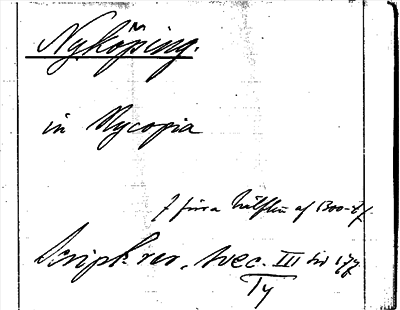 Nyköping.
in Nycopia
I förra hälften af 1300-t.
Script. rer. svec. III sid 177
Ty